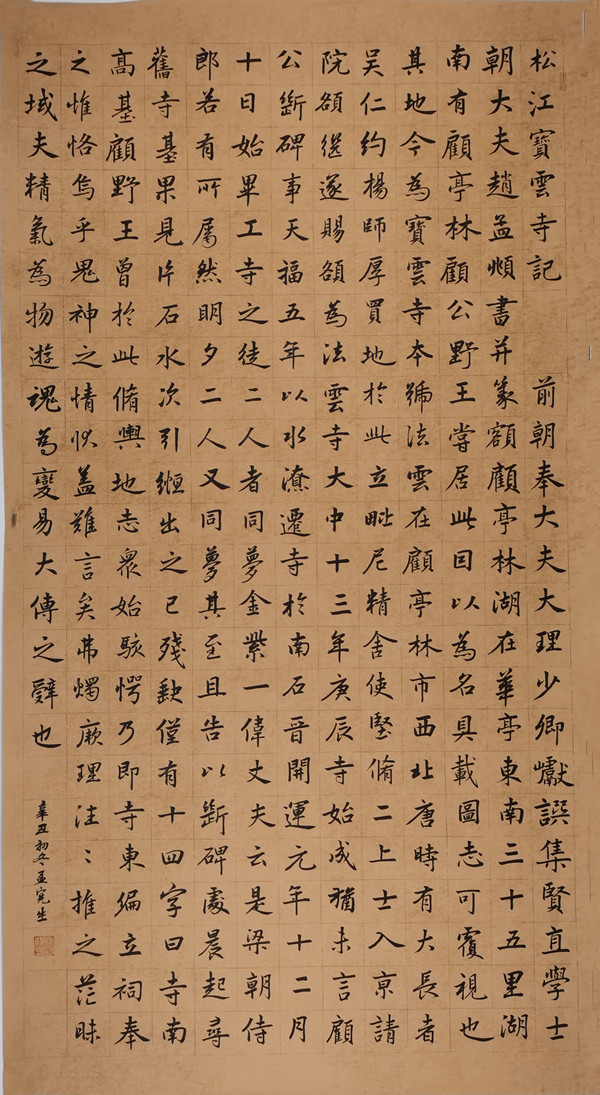 松江寶雲寺記 前朝奉大夫大理少卿巘譔集賢直學士
朝大夫趙孟頫書并篆額顧亭林湖在華亭東南三十五里湖
南有顧亭林顧公野王嘗居此因以為名具載圖志可覆視也
其地今為寶雲寺本號法雲在顧亭林市西北唐時有大長者
吴仁約楊師厚買地於此立毗尼精舍使堅脩二上士入京請
院額繼遂賜額為法雲寺大中十三年庚辰寺始成猶未言顧
公斷碑事天福五年以水潦遷寺於南石晋開運元年十二月
十日始畢工寺之徒二人者同夢金紫一偉丈夫云是梁朝侍
郎若有所属然明夕二人又同夢其至且告以斷碑處晨起尋
舊寺基果見片石水次引縆出之已殘缺僅有十四字曰寺南
高基顧野王曾於此脩輿地志衆始駭愕乃即寺東偏立祠奉
之惟恪烏乎鬼神之情狀蓋難言矣弗燭厥理往々推之茫昧
之域夫精氣為物遊魂為變易大傳之辭也
辛丑初冬孟宪生